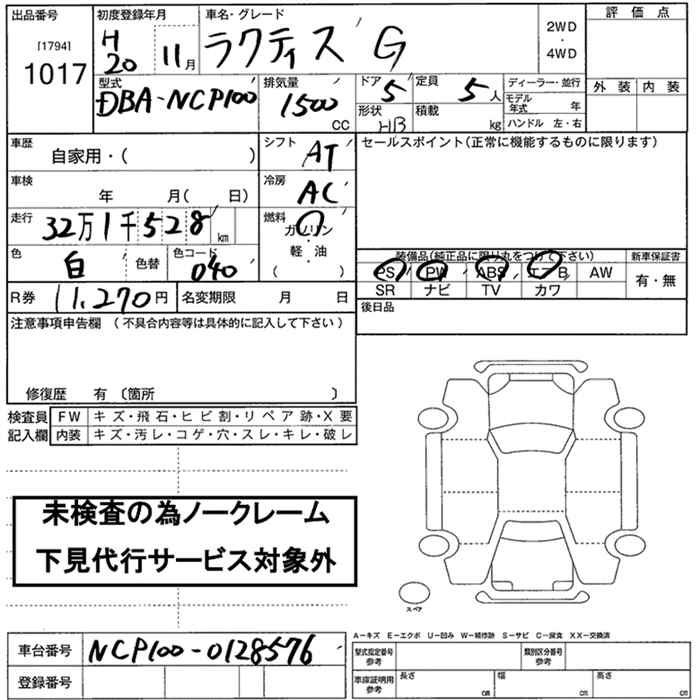 出品番号 初度登録年月 車名・グレード 評価点
[1794] H 2WD
1017 20 11月 ラクティス G ・
4WD
型式 排気量 ドア 定員 ディーラー・並行 外装 内装
DBA-NCP100 1500 CC 5 5人 モデル年式 年
形状 積載 ハンドル 左・右
HB kg
車歴 シフト セールスポイント(正常に機能するものに限ります)
自家用・( ) AT
車検 冷房
年 月( 日) AC
走行 燃料
32万1千528km ガソリン・
軽・油
( )
色 色コード 装備品(純正品に限り丸をつけて下さい) 新車保証書
白 色替 040 PS PW ABS エアB AW 有・無
SR ナビ TV カワ
R券 11,270円 名変期限 月 日 後日品
注意事項申告欄 (不具合内容等は具体的に記入して下さい)
修復歴 有 〔箇所 〕
検査員 FW キズ・飛石・ヒビ割・リペア跡・X要
記入欄 内装 キズ・汚レ・コゲ・穴・スレ・キレ・破レ
未検査の為ノークレーム
下見代行サービス対象外
スペア
A−キズ E−エクボ U−凹み W−補修跡 S−サビ C−腐食 XX−交換済
車台番号 NCP100-0128576 型式指定番号 参考 類別区分番号 参考
登録番号 車庫証明用 参考 長さ cm 幅 cm 高さ cm